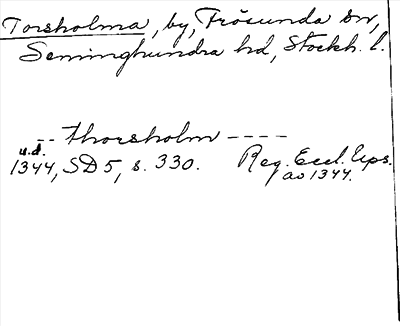 Torsholma, by, Frösunda sn,
Seminghundra hd, Stockh. l.
-- thorsholm ----
u.d.
1344, SD 5, s. 330. Reg. Eccl. Ups.
ao 1344.